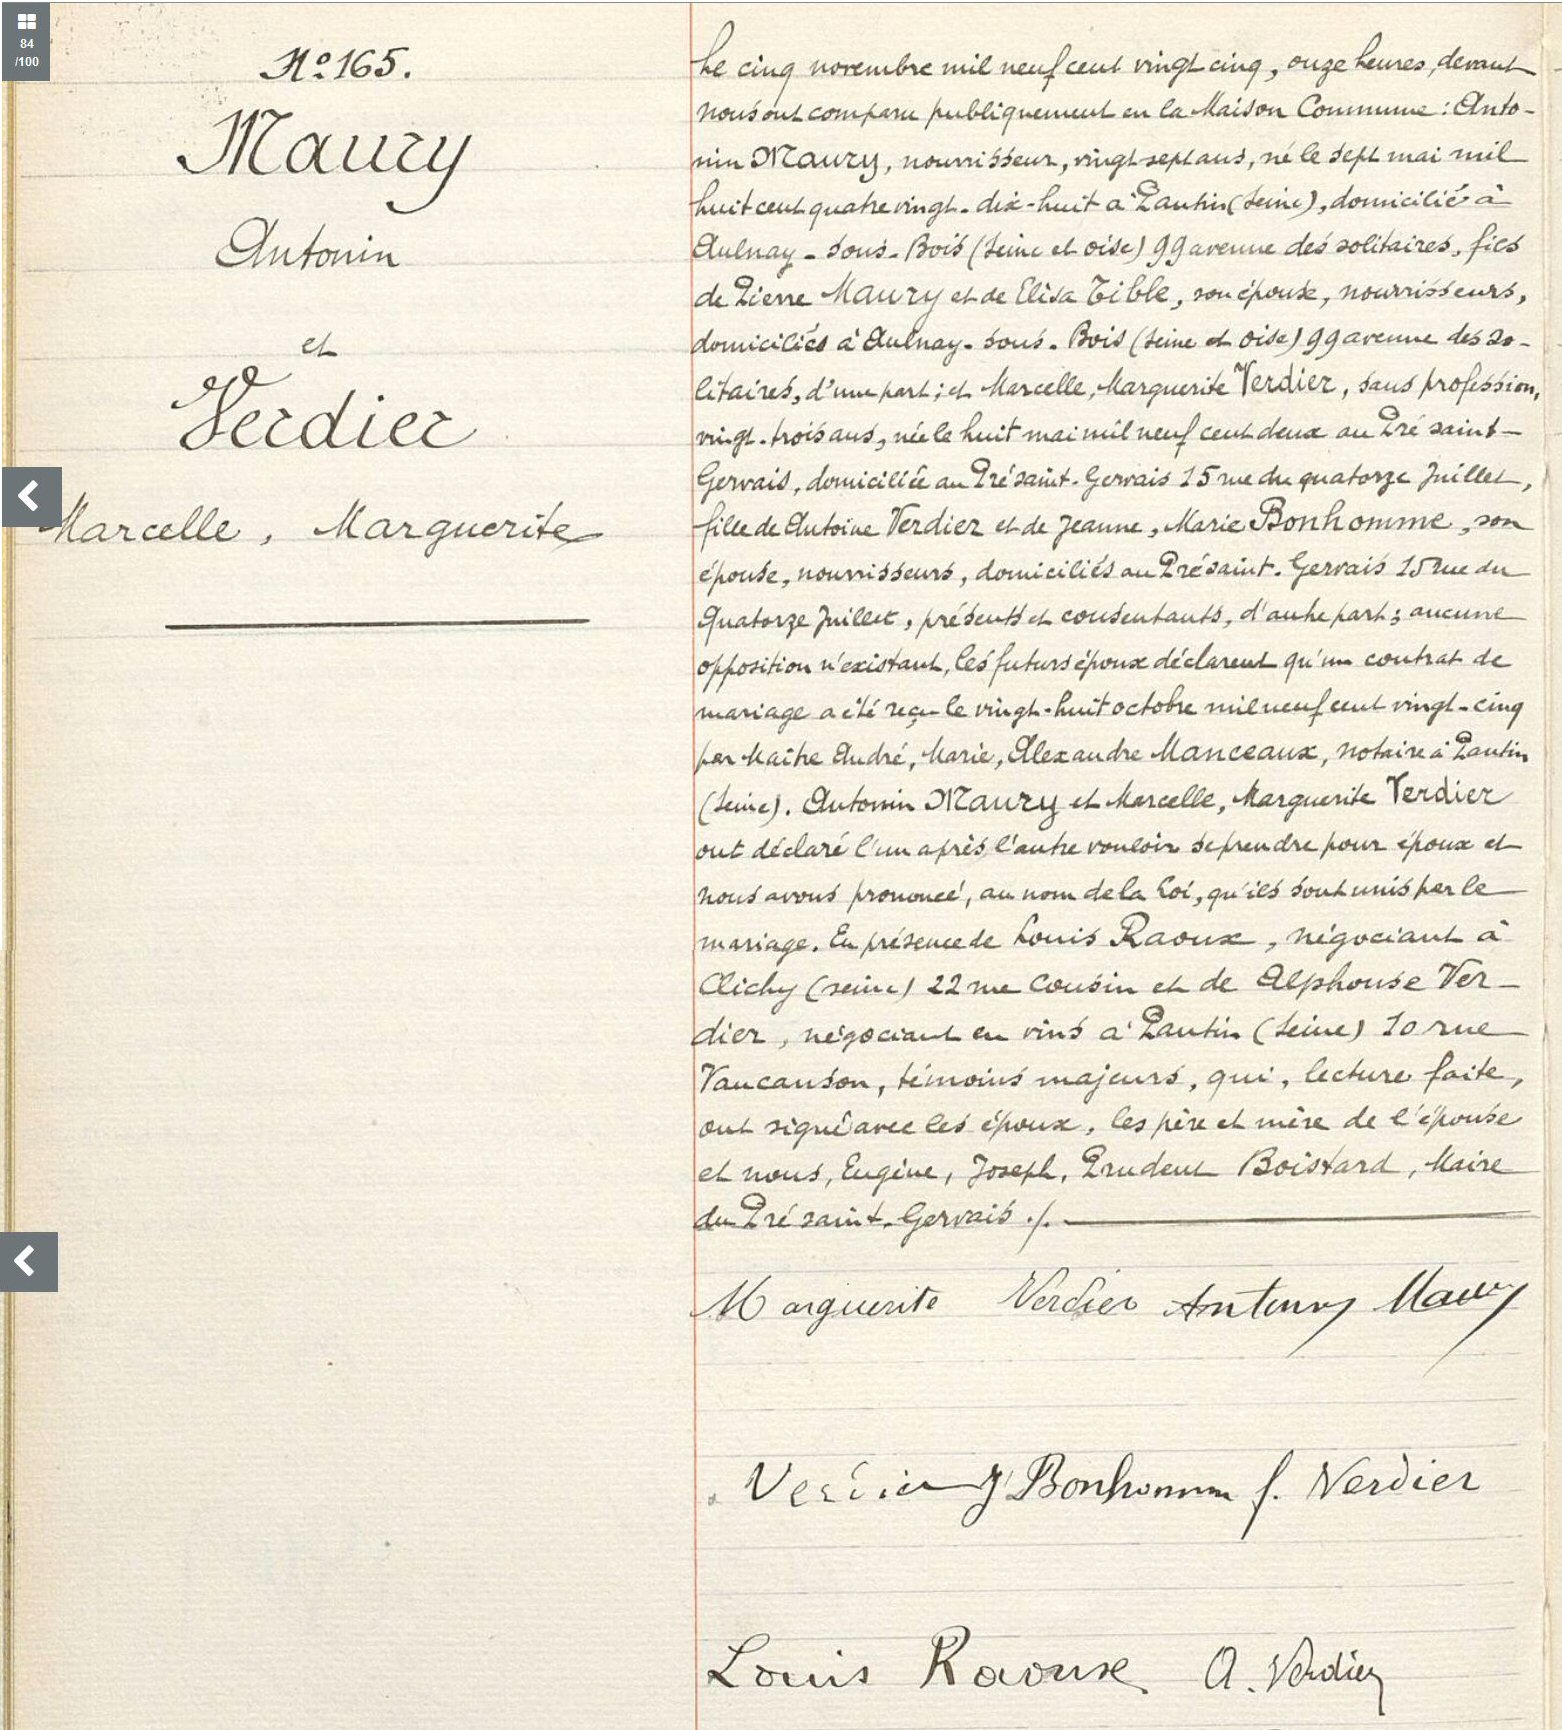 84
/100
Nº 165.
Maury
Antonin
et
Verdier
Marcelle, Marguerite
Le cinq novembre mil neuf cent vingt cinq, onze heures, devant
nous ont comparu publiquement en la Maison Commune : Anto-
nin Maury, nourrisseur, vingt-sept ans, né le sept mai mil
huit cent quatre vingt-dix-huit à Pantin (Seine), domicilié à
Aulnay-sous-Bois (Seine et oise) 99 avenue des solitaires, fils
de Pierre Maury et de Elisa Tible, son épouse, nourrisseurs,
domiciliés à Aulnay-sous-Bois (Seine et oise) 99 avenue des so-
litaires, d'une part ; et Marcelle, Marguerite Verdier, sans profession,
vingt-trois ans, née le huit mai mil neuf cent deux au Pré saint-
Gervais, domiciliée au Pré saint-Gervais 15 rue du quatorze Juillet,
fille de Antoine Verdier et de Jeanne, Marie Bonhomme, son
épouse, nourrisseurs, domiciliés au Pré saint-Gervais 15 rue du
Quatorze Juillet, présents et consentants, d'autre part ; aucune
opposition n'existant, les futurs époux déclarent qu'un contrat de
mariage a été reçu le vingt-huit octobre mil neuf cent vingt-cinq
par Maître André, Marie, Alexandre Manceaux, notaire à Pantin
(Seine). Antonin Maury et Marcelle, Marguerite Verdier
ont déclaré l'un après l'autre vouloir se prendre pour époux et
nous avons prononcé, au nom de la Loi, qu'ils sont unis par le
mariage. En présence de Louis Raoux, négociant à
Clichy (seine) 22 rue Cousin et de Alphonse Ver-
dier, négociant en vins à Pantin (Seine) 10 rue
Vaucanson, témoins majeurs, qui, lecture faite,
ont signé avec les époux, les père et mère de l'épouse
et nous, Eugène, Joseph, Prudent Boistard, Maire
du Pré saint-Gervais ./.
Marguerite Verdier Antony Maury
Verdier J Bonhomm f. Verdier
Louis Raoux A. Verdier